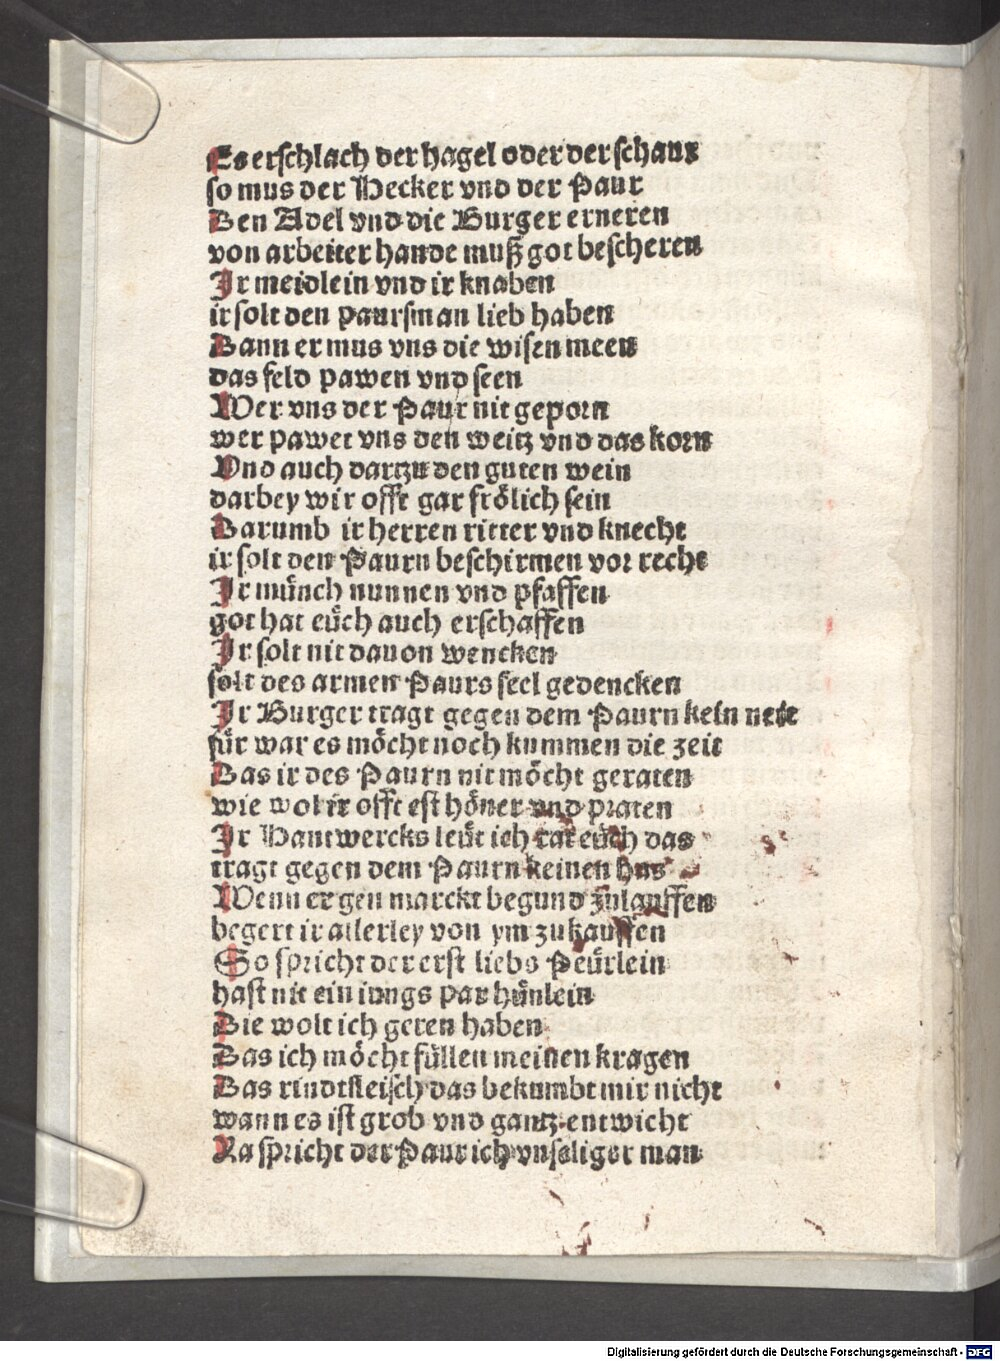 Es erschlach der hagel oder der schaur
so mus der Hecker vnd der Paur
Den Adel vnd die Burger erneren
von arbeiter hande muß got bescheren
Ir meidlein vnd ir knaben
ir solt den paursman lieb haben
Dann er mus vns die wisen meen
das feld pawen vnd seen
Wer vns der Paur nit geporn
wer pawet vns den weitz vnd das korn
Vnd auch dartzu den guten wein
darbey wir offt gar frölich sein
Darumb ir herren ritter vnd knecht
ir solt den Paurn beschirmen vor recht
Ir münch nunnen vnd pfaffen
got hat eüch auch erschaffen
Ir solt nit dauon wencken
solt des armen Paurs seel gedencken
Ir Burger tragt gegen dem Paurn kein neit
für war es möcht noch kummen die zeit
Das ir des Paurn nit möcht geraten
wie wol ir offt est höner vnd praten
Ir Hantwercks leüt ich rat eüch das
tragt gegen dem Paurn keinen has
Wenn er gen marckt begund zulauffen
begert ir allerley von ym zu kauffen
So spricht der erst liebs Peürlein
hast nit ein iungs par hünlein
Die wolt ich geren haben
Das ich möcht füllen meinen kragen
Das rindtfleisch das bekumbt mir nicht
wann es ist grob vnd gantz entwicht
Ra spricht der Paur ich vnseliger man
Digitalisierung gefördert durch die Deutsche Forschungsgemeinschaft - DFG